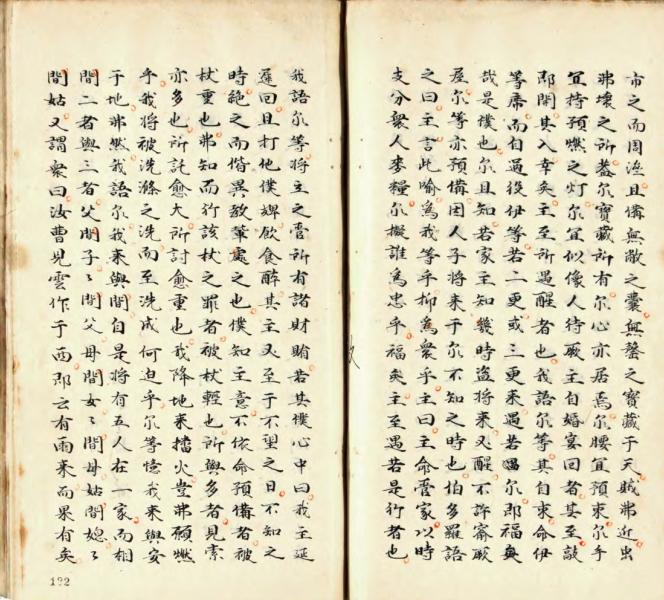 市之而周濟且備無敝之囊無罄之寶藏于天賊弗近虫
弗壞之所葢尔寶藏所有尔心亦居焉尔腰宜預束尔手
宜持預燃之灯尔宜似像人待厥主自婚宴回者其至敲
即開其入幸矣主至所遇醒者也我語尔等其自束命伊
等席而自過役伊等若二更或三更来遇若尔即福矣
哉是僕也尔且知若家主知幾時盜將来又醒不許窬厥
屋尔等亦預備因人子將来于尔不知之時也伯多羅語
之曰主言此喻為我等乎抑為衆乎主曰主命管家以時
支分衆人麥糧尔擬誰為忠乎福矣主至遇若是行者也
我語尔等將主之管所有諸財賄若其僕心中曰我主延
遲回且打他僕婢飲食醉其主又至于不望之日不知之
時絶之而偕異教輩處之也僕知主意不依命預備者被
杖重也弗知而行該杖之罪者被杖輕也所與多者見索
亦多也所託愈大所討愈重也我降地来擂火豈弗願燃
乎我將被洗滌之洗而至洗成何迫乎尔等憶我来與安
于地弗然我語尔我来與間自是將有五人在一家而相
間二者與三者父間子子間父母間女女間母姑間媳媳
間姑又謂衆曰汝曹見雲作于西即云有雨来而果有矣
132